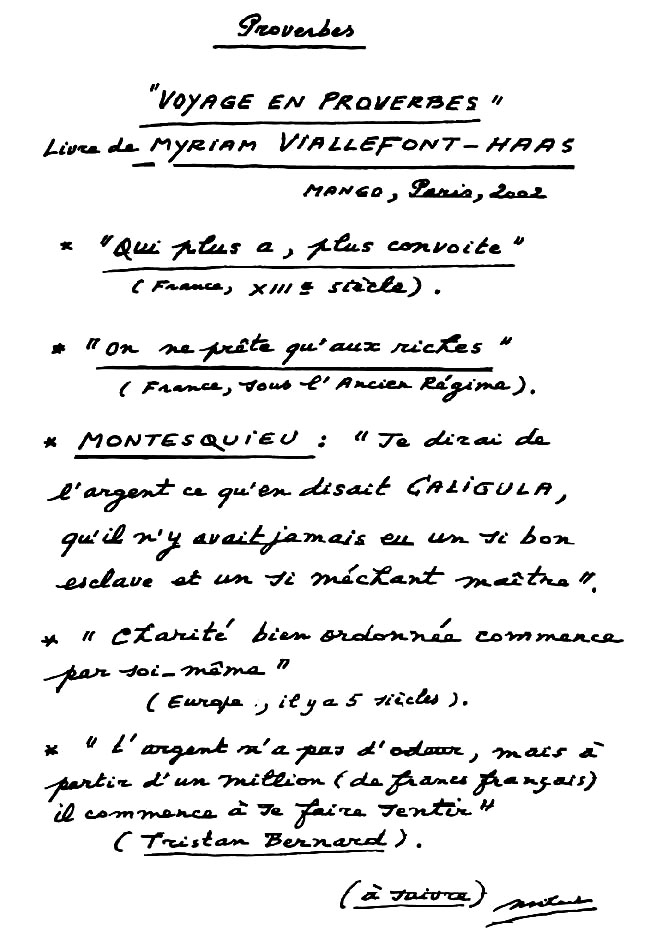 Proverbes
"VOYAGE EN PROVERBES"
Livre de MYRIAM VIALLEFONT-HAAS
MANGO, Paris, 2002
* "Qui plus a, plus convoite"
(France, XIIIe siècle).
* "On ne prête qu'aux riches"
(France, sous l'Ancien Régime).
* MONTESQUIEU : "Je dirai de
l'argent ce qu'en disait CALIGULA,
qu'il n'y avait jamais eu un si bon
esclave et un si méchant maître".
* "Charité bien ordonnée commence
par soi-même"
(Europe., il y a 5 siècles).
* "L'argent n'a pas d'odeur, mais à
partir d'un million (de francs français)
il commence à se faire sentir"
(Tristan Bernard).
(à suivre)